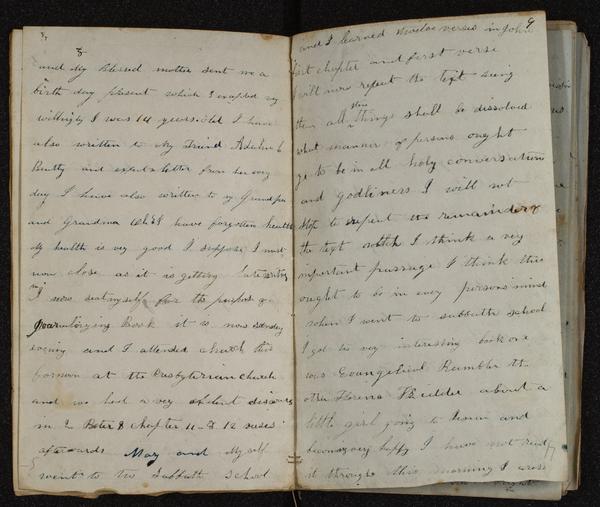 8
and My blessed mother sent me a
birth day present which I excepted very
willingly I was 14 years old I have
also written to My friend Adaline
Beatty and expect a letter from her every
day I have also written to my Grandpa
and Grandma which I have forgotten
My health is very good I suppose I must
now close as it is getting late
I now seat myself for the purpose of
journalizing Book it is now sunday
evening and I attended church this
fornoon at the Presbyterian church
and we had a very exelent discourse
in 2 Peter 3 Chapter 11 & 12 verses
afterwards May and My self
went to the Sabbath School
9
and I learned twelve verses in John
first chapter and first verse
I will now repeat the text seeing
then all these things shall be dissolved
what manner of persons ought
ye to be in all holy conversation
and godliness I will not
stop to repeat the remainder of
the text which I think a very
important passage I think this
ought to be in every persons mind
when I went to sabbath school
I got two very interesting book one
was Evangelical Rambler the
other Florence Kidder about a
little girl going to and
becoming very happy I have not read
it through this morning I